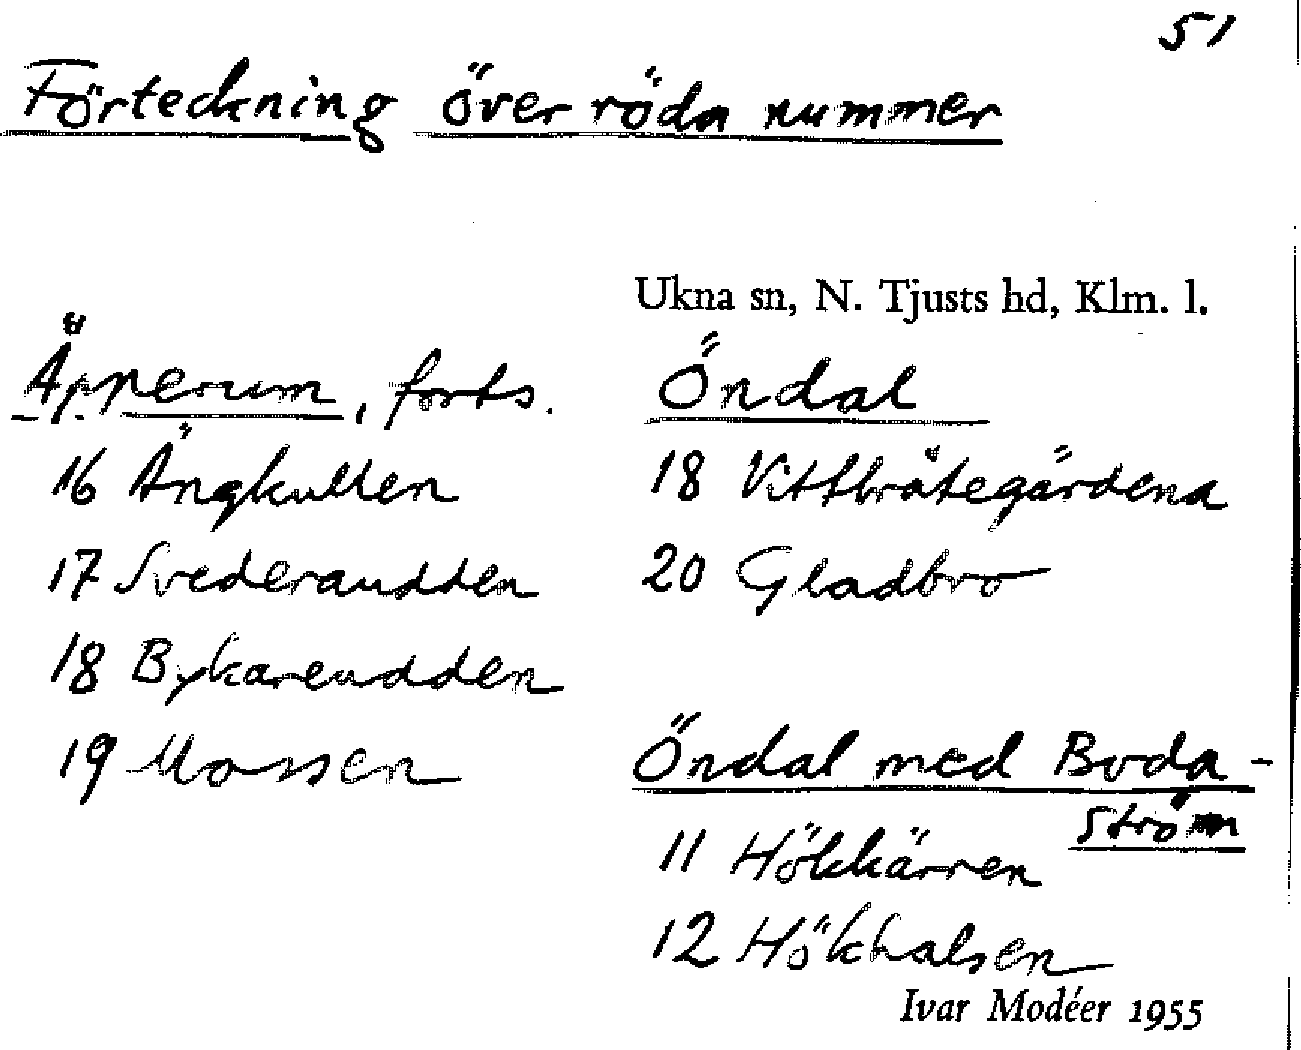 51
Förteckning över röda nummer
Ukna sn, N. Tjusts hd, Klm. l.
Äpperum, forts.
16 Ängkullen
17 Svederaudden
18 Bykareudden
19 Mossen
Öndal
18 Vittbråtegärdena
20 Gladbro
Öndal med Boda-
ström
11 Hökkärren
12 Hökhalsen
Ivar Modéer 1955